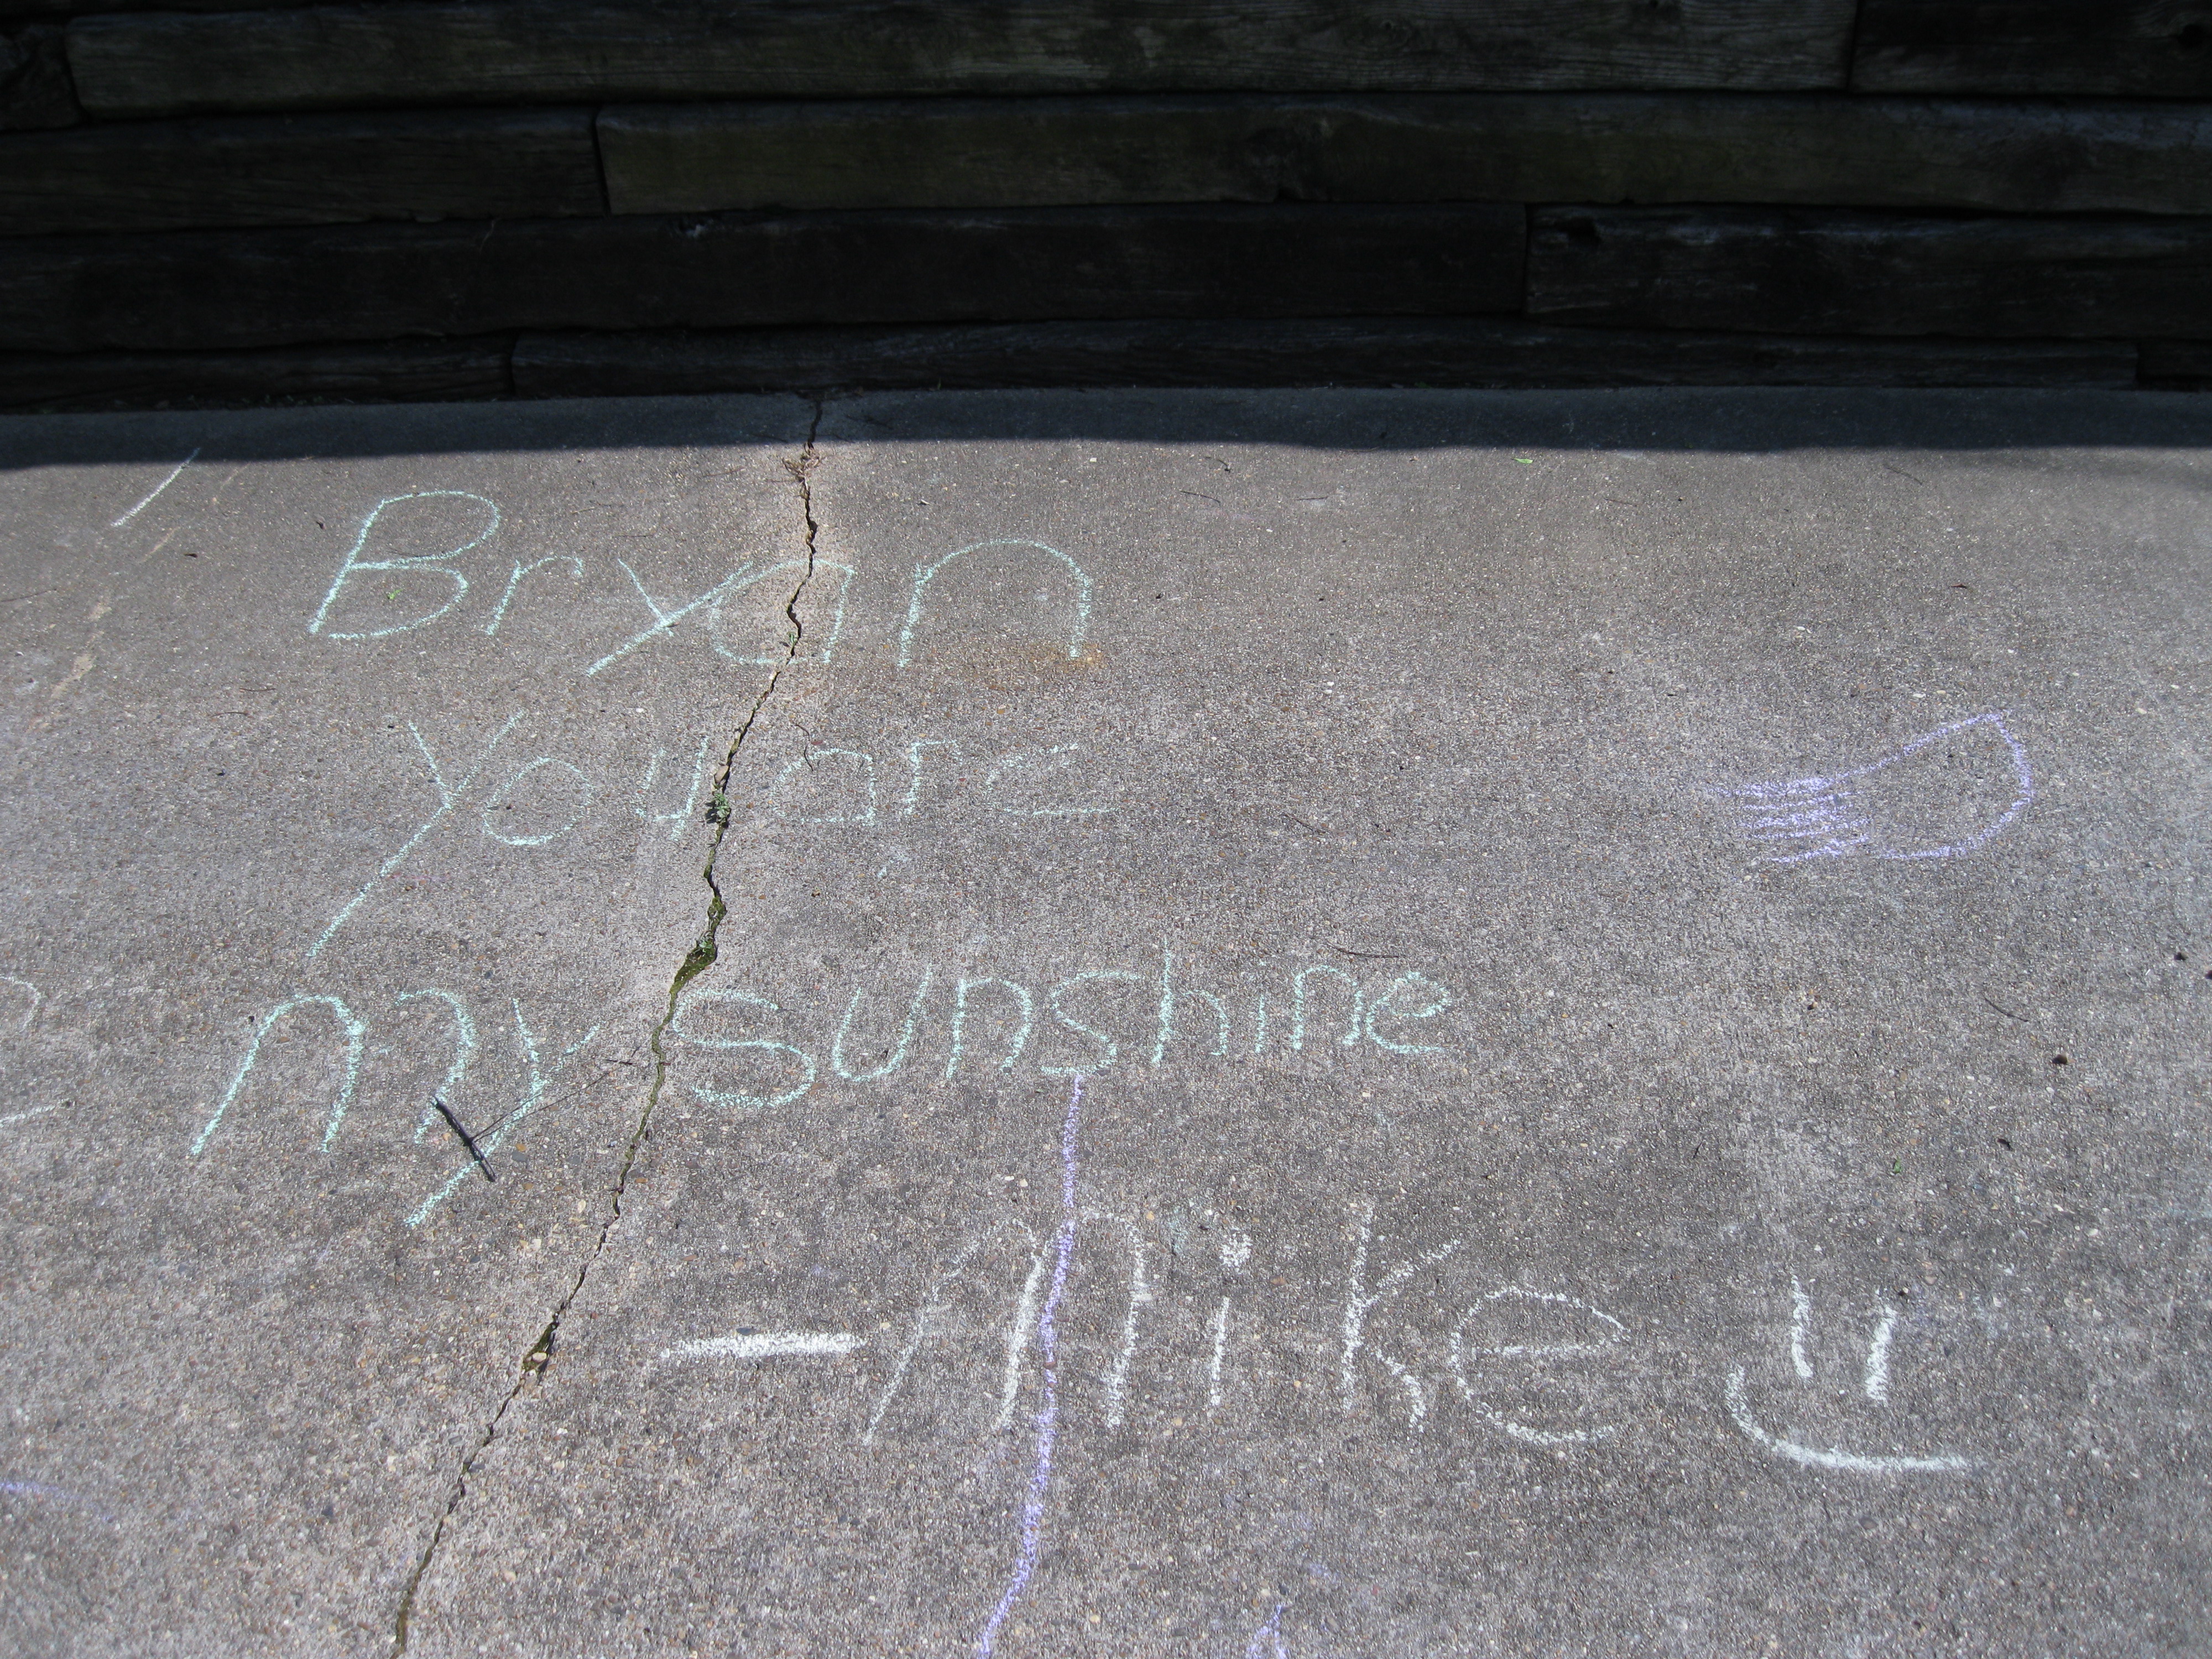 Bryan
You are
my sunshine
-mike